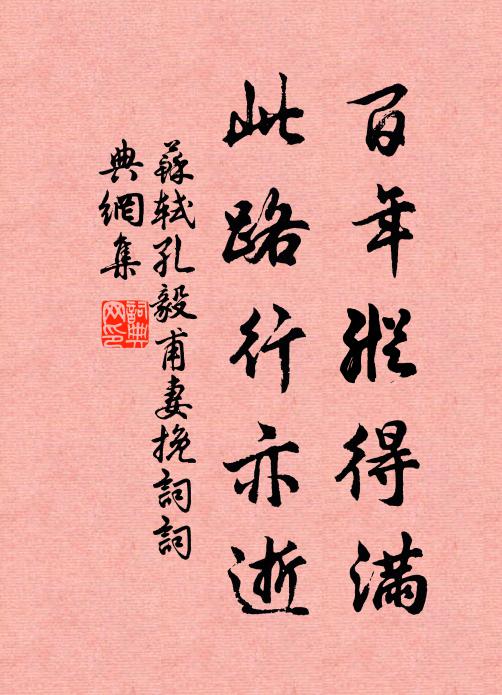 百年縱得滿
此路行亦逝
蘇軾孔毅甫妻挽詞詞
典網集
詞典
网印